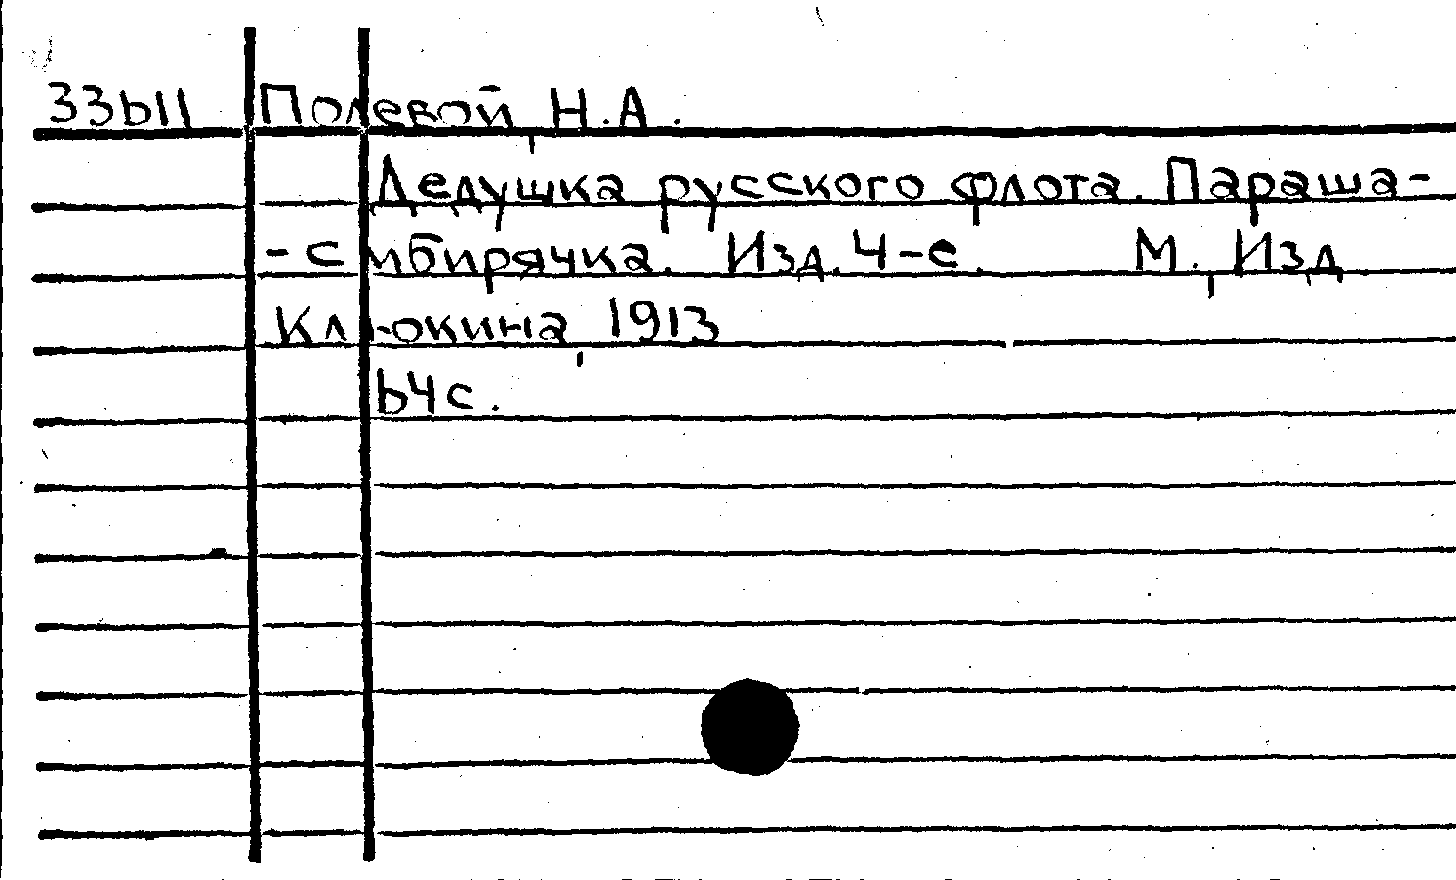 33611 Полевой, Н.А.
Дедушка русского флота. Параша-
-сибирячка. Изд. 4-е. М., Изд
Клюкина, 1913
64с.